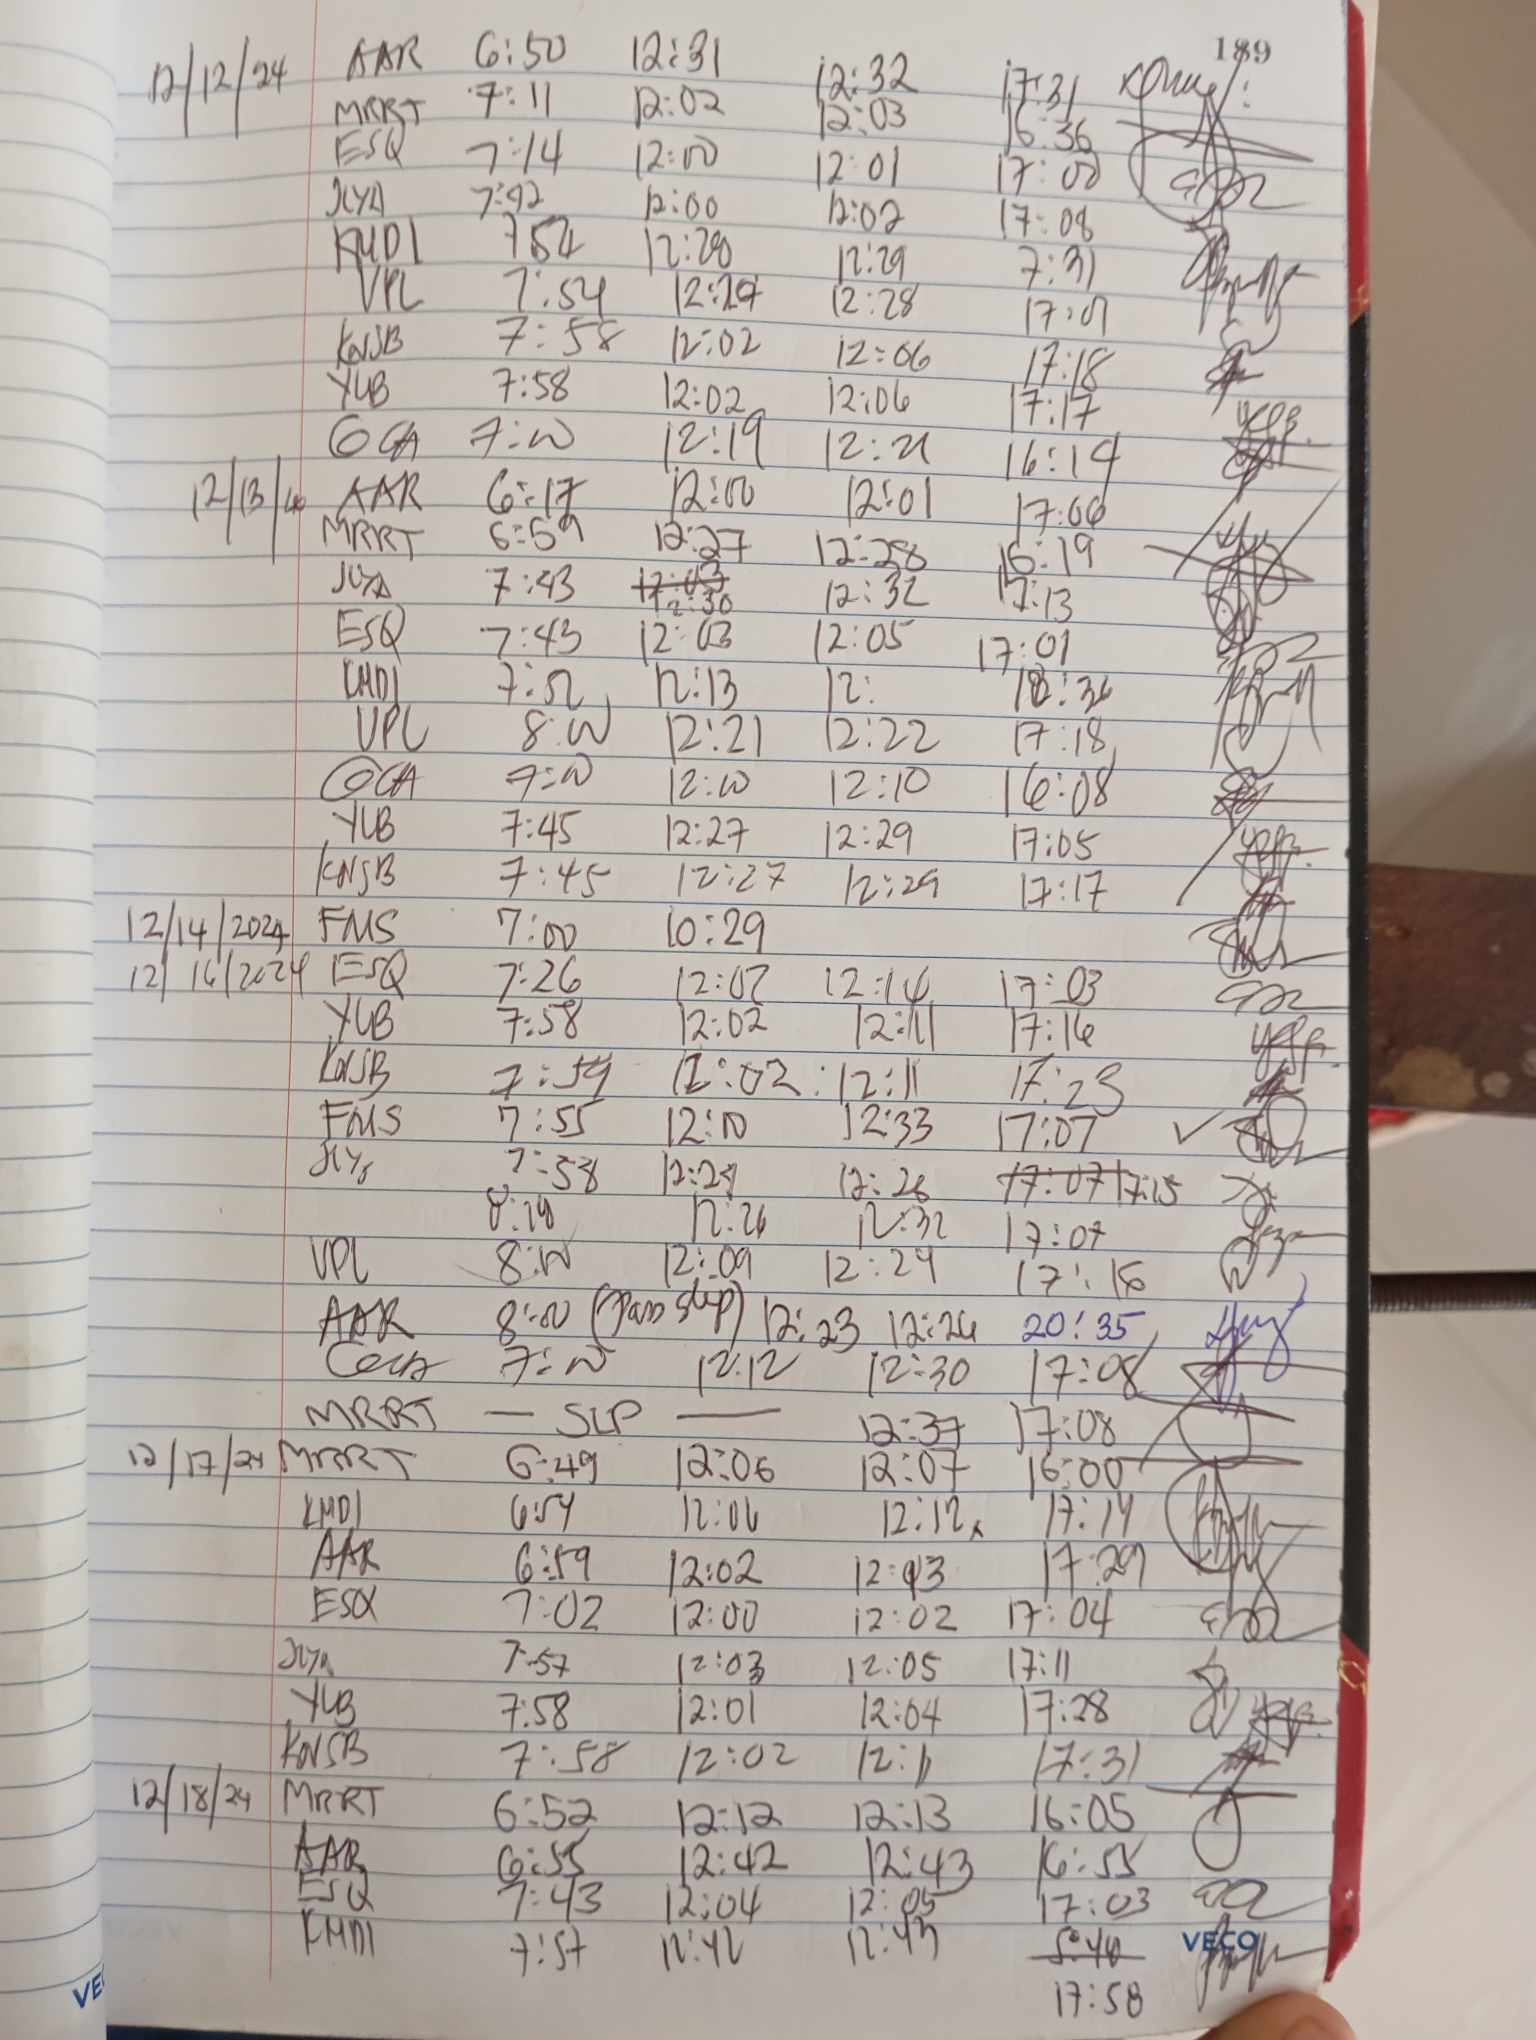 189
12/12/24 AAR 6:50 12:31 12:32 17:31
MRRT 7:11 12:02 12:03 16:36
ESQ 7:14 12:00 12:01 17:00
7:42 12:00 12:02 17:08
KMDI 754 12:28 12:29 7:31
VPL 7:54 12:27 12:28 17:01
KNSB 7:58 12:02 12:06 17:18
YLB 7:58 12:02 12:06 17:17
GCA 7:00 12:19 12:21 16:14
12/13/ AAR 6:17 12:00 12:01 17:06
MRRT 6:59 12:27 12:28 16:19
7:43 12:03 12:30 12:32 17:13
ESQ 7:43 12:03 12:05 17:01
KMDI 7:52 12:13 12: 18:36
VPL 8:00 12:21 12:22 17:18
GCA 7:00 12:10 12:10 16:08
YLB 7:45 12:27 12:29 17:05
KNSB 7:45 12:27 12:29 17:17
12/14/2024 FMS 7:00 10:29
12/16/2024 ESQ 7:26 12:02 12:16 17:03
YLB 7:58 12:02 12:11 17:16
KNSB 7:59 12:02 12:11 17:23
FMS 7:55 12:10 12:33 17:07
7:58 12:24 12:26 17:07 17:15
12:26 12:32 17:07
VPL 8:00 12:09 12:24 17:18
AAR 8:00 (Pass slip) 12:23 12:24 20:35
7:00 12:12 12:30 17:08
MRRT — SLP — 12:37 17:08
12/17/24 MRRT 6:49 12:06 12:07 16:00
KMDI 6:54 12:06 12:12 17:14
AAR 6:59 12:02 12:03 17:29
ESQ 7:02 12:00 12:02 17:04
7:57 12:03 12:05 17:11
YLB 7:58 12:01 12:04 17:28
KNSB 7:58 12:02 12:11 17:31
12/18/24 MRRT 6:52 12:12 12:13 16:05
AAR 6:55 12:42 12:43 16:55
ESQ 7:43 12:04 12:05 17:03
KMDI 7:57 12:42 12:43 5:40
VECO
17:58